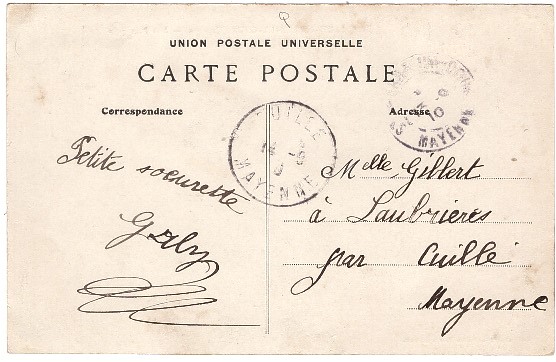 UNION POSTALE UNIVERSELLE
CARTE POSTALE
Correspondance
Adresse
CUILLÉ
MAYENNE
10
MAYENNE
Petite soeurette
Gaby
Melle Gilbert
à Laubrières
par Cuillé
Mayenne